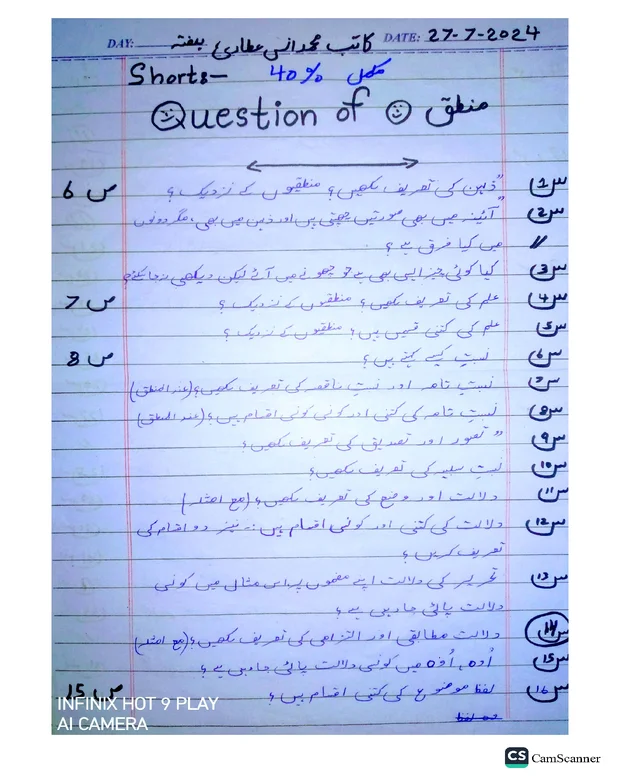 DAY: ہفتہ کاتب محمد انس عطاری DATE: 27-7-2024
Shorts:- 40% مکمل
Question of منطق
س1) "ذہن کی تعریف لکھیں؟ منطقیوں کے نزدیک؟ ص 6
س2) "آئینہ میں بھی صورتیں چھپتی ہیں اور ذہن میں بھی، مگر دونوں
میں کیا فرق ہے؟ //
س3) کیا کوئی چیز ایسی بھی ہے جو چھونے میں آئے لیکن دیکھی نہ جا سکے؟
س4) علم کی تعریف لکھیں؟ منطقیوں کے نزدیک؟ ص 7
س5) علم کی کتنی قسمیں ہیں؟ منطقیوں کے نزدیک؟
س6) نسبت کسے کہتے ہیں؟ ص 8
س7) نسبتِ تامہ اور نسبتِ ناقصہ کی تعریف لکھیں؟ (عند المنطق)
س8) نسبتِ تامہ کی کتنی اور کونی کونی اقسام ہیں؟ (عند المنطق)
س9) "تصور اور تصدیق کی تعریف لکھیں؟
س10) نسبتِ سلبیہ کی تعریف لکھیں؟
س11) دلالت اور وضع کی تعریف لکھیں؟ (مع امثلہ)
س12) دلالت کی کتنی اور کونسی اقسام ہیں :- نیز دو اقسام کی
تعریف کریں؟
س13) تحریر کی دلالت اپنے مضمون پر اس مثال میں کونسی
دلالت پائی جا رہی ہے؟
س14) دلالت مطابقی اور التزامی کی تعریف لکھیں؟ (مع امثلہ)
س15) اُوہ، اُوہ میں کونسی دلالت پائی جا رہی ہے؟
س16) لفظ موضوع کی کتنی اقسام ہیں؟ ص 15
INFINIX HOT 9 PLAY
AI CAMERA
CS CamScanner